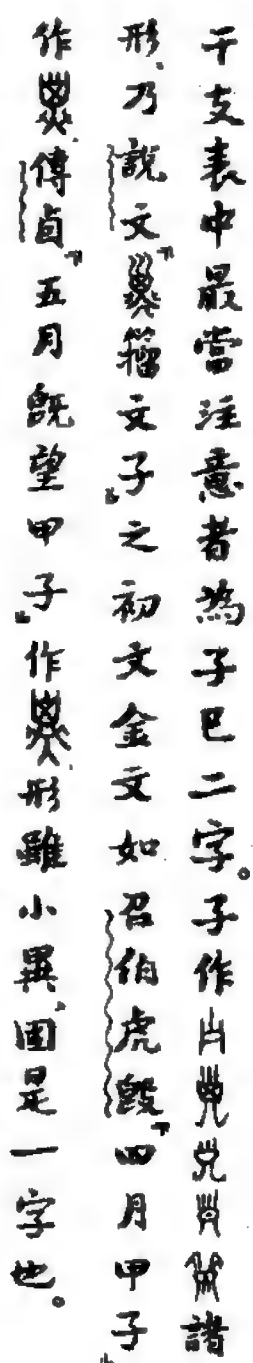 干支表中最當注意者為子巳二字。子作諸
形、乃說文『籀文子』之初文金文如召伯虎𣪘『四月甲子』
作、傳卣『五月既望甲子』作、形雖小異、固是一字也。